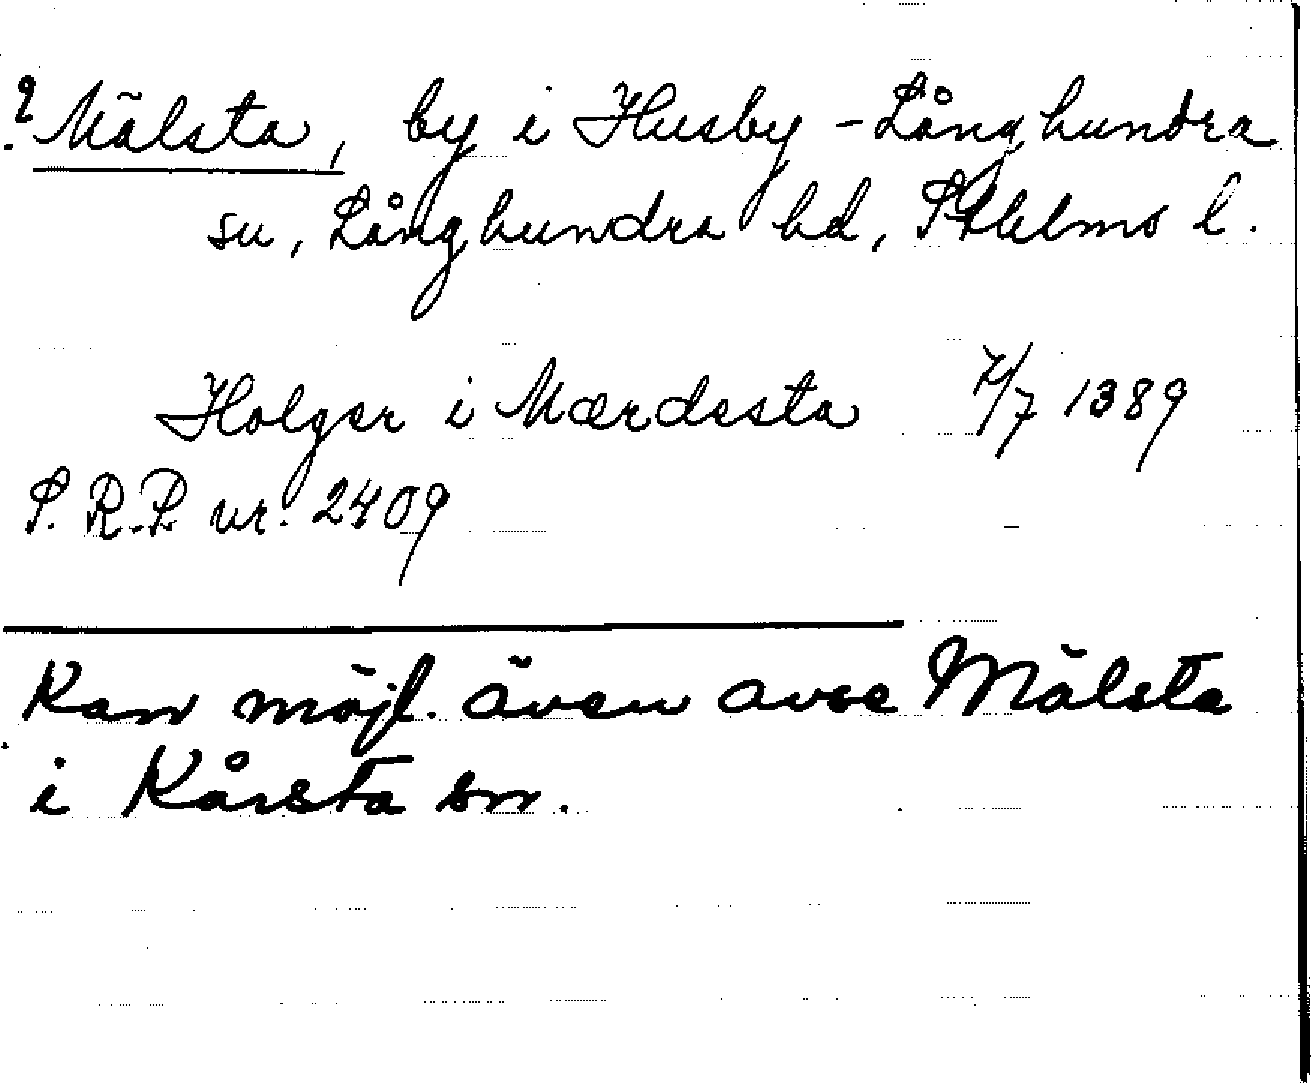 ? Mälsta, by i Husby-Långhundra
sn, Långhundra hd, Sthlms l.
Holger i Mærdesta 7/7 1389
S.R.P. nr. 2409
Kan möjl. även avse Mälsta
i Kårsta sn.